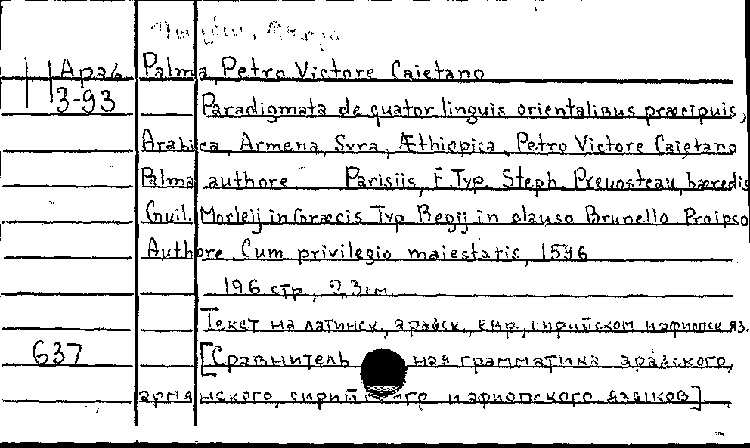 Араб Palma Petro Victore Caietano
3-93 Paradigmata de quator linguis orientalibus præcipuis,
Arabica, Armena, Syra, Æthiopica, Petro Victore Caietano
Palma authore Parisiis, E Typ. Steph. Prevosteau, hæredis
Guil. Morleij in Græcis Typ Regij in clauso Brunello Pro ipso
Authore Cum privilegio maiestatis, 1596
196 стр, 23 см
Текст на латинск, арабск, сирийском и эфиопск яз.
637 [Сравнительная грамматика арабского,
армянского, сирийского и эфиопского языков]